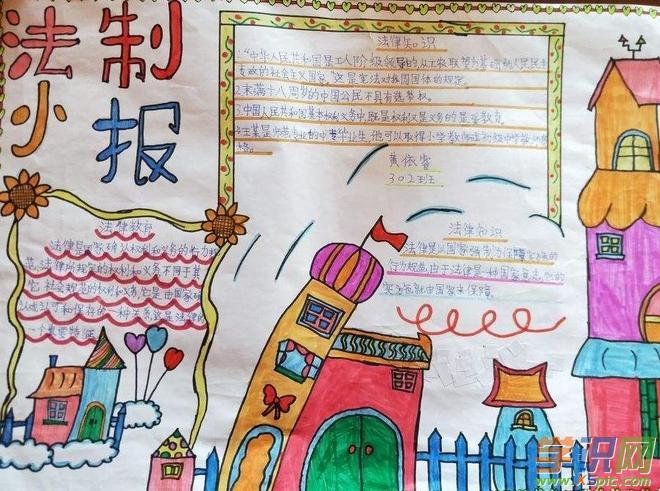 法制
小报
法律知识
1."中华人民共和国是工人阶级领导的以工农联盟为基础的人民民主
专政的社会主义国家"这是宪法对我国国体的规定。
2.未满十八周岁的中国公民不具有选举权。
3.中国人民共和国基本权利义务中,既是权利又是义务的是受教育。
4.王某是师范专业的中专毕业生,他可以取得小学教师或初级中学教师资
格。
黄依睿
302班
法律教育
法律是国家确认权利和义务的行为规
范,法律所规定的权利和义务不同于其
它社会规范的权利和义务,它是由国家确
认或认可和保存的一种关系,这是法律的
一个重要特征
法律知识
法律是以国家强制力保障实施的
行为规范,由于法律是一种国家意志,他的
实施就由国家来保障
学识网
www.XSpic.com